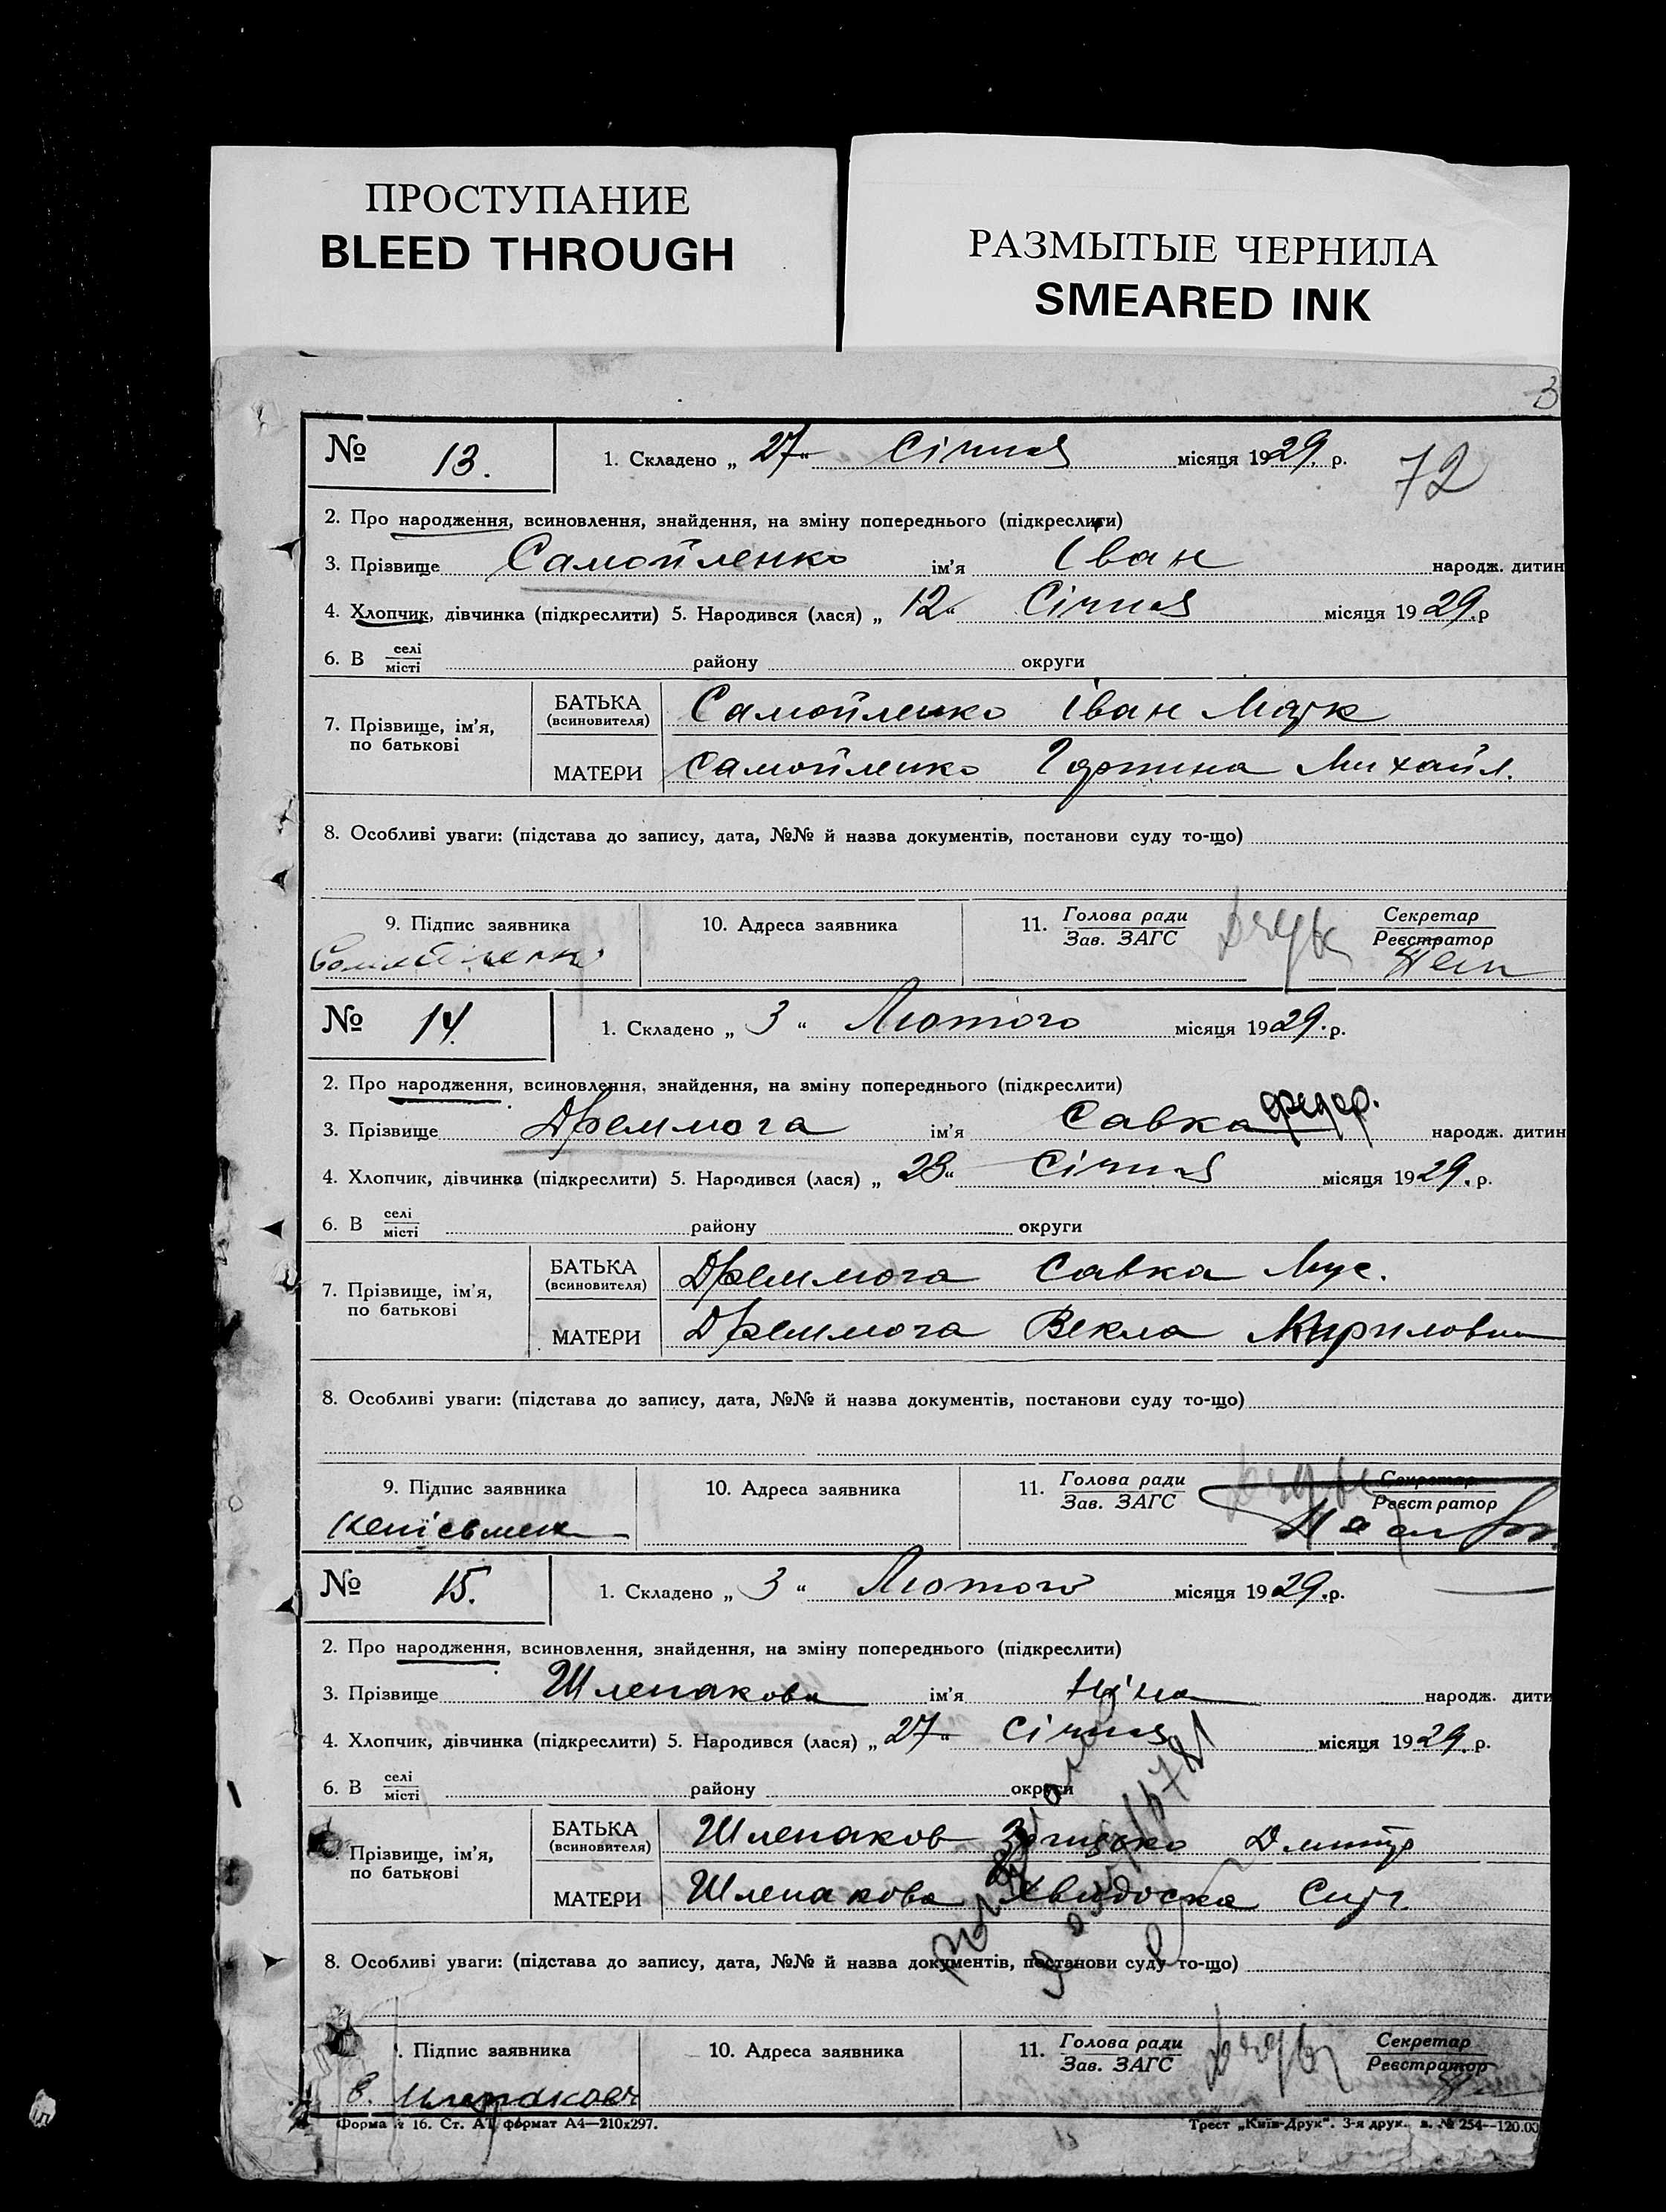 ПРОСТУПАНИЕ
BLEED THROUGH
РАЗМЫТЫЕ ЧЕРНИЛА
SMEARED INK
3
№ 13. 1. Складено „ 27 “ Січня місяця 1929. р.
72
2. Про народження, всиновлення, знайдення, на зміну попереднього (підкреслити)
3. Прізвище Самойленко ім’я Іван народж. дитин
4. Хлопчик, дівчинка (підкреслити) 5. Народився (лася) „ 12 “ Січня місяця 1929. р
6. В селі місті району округи
7. Прізвище, ім’я, по батькові
БАТЬКА (всиновителя) Самойленко Іван Марк
МАТЕРИ Самойленко Михайл.
8. Особливі уваги: (підстава до запису, дата, №№ й назва документів, постанови суду то-що)
9. Підпис заявника 10. Адреса заявника 11. Голова ради Зав. ЗАГС Секретар Реєстратор
Самойленко
№ 14. 1. Складено „ 3 “ Лютого місяця 1929. р.
2. Про народження, всиновлення, знайдення, на зміну попереднього (підкреслити)
федор.
3. Прізвище Дремлюга ім’я Савка народж. дитин
4. Хлопчик, дівчинка (підкреслити) 5. Народився (лася) „ 28 “ Січня місяця 1929. р.
6. В селі місті району округи
7. Прізвище, ім’я, по батькові
БАТЬКА (всиновителя) Дремлюга Савка Мус.
МАТЕРИ Дремлюга Векла Кириловна
8. Особливі уваги: (підстава до запису, дата, №№ й назва документів, постанови суду то-що)
9. Підпис заявника 10. Адреса заявника 11. Голова ради Зав. ЗАГС Секретар Реєстратор
№ 15. 1. Складено „ 3 “ Лютого місяця 1929. р.
2. Про народження, всиновлення, знайдення, на зміну попереднього (підкреслити)
3. Прізвище Шлепакова ім’я Ніна народж. дити
4. Хлопчик, дівчинка (підкреслити) 5. Народився (лася) „ 27 “ Січня місяця 1929. р.
6. В селі місті району округи
Прізвище, ім’я, по батькові
БАТЬКА (всиновителя) Шлепаков Дмитр
МАТЕРИ Шлепакова Хвидоска
8. Особливі уваги: (підстава до запису, дата, №№ й назва документів, постанови суду то-що)
. Підпис заявника 10. Адреса заявника 11. Голова ради Зав. ЗАГС Секретар Реєстратор
Форма № 16. Ст. АТ, формат А4—210х297. Трест „Київ-Друк“. 3-я друк. з. № 254—120.00